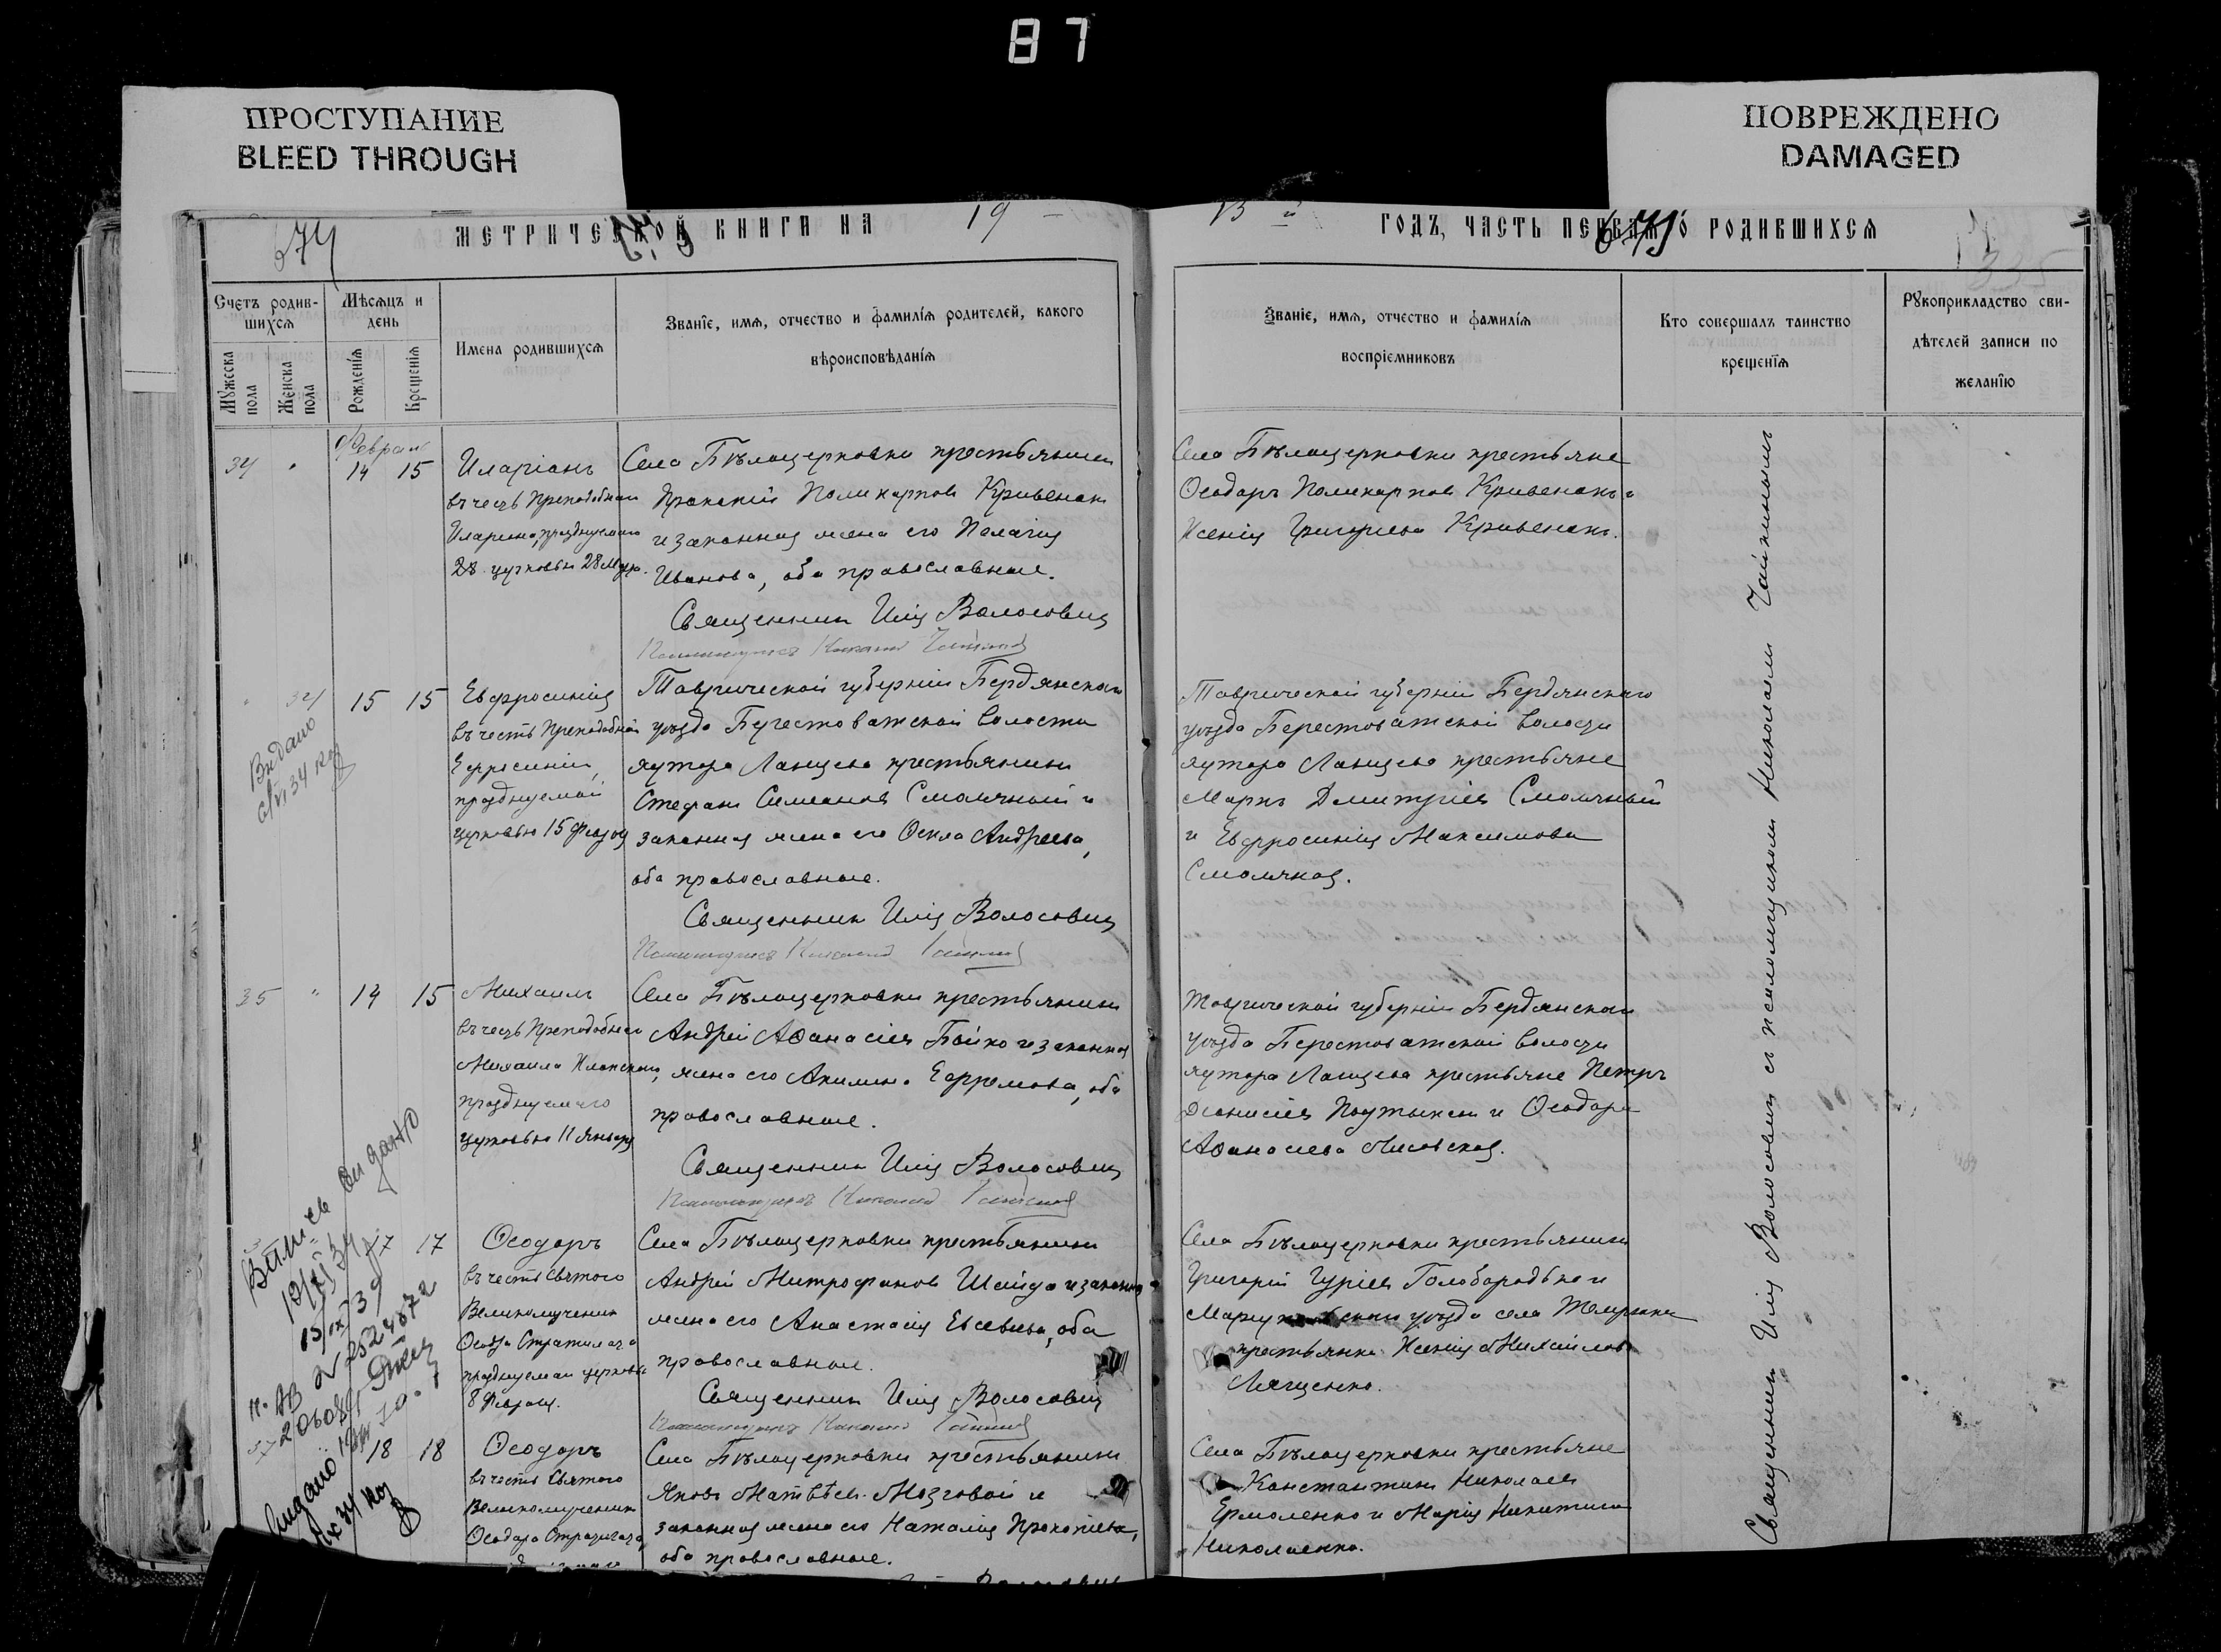 87
ПРОСТУПАНИЕ
BLEED THROUGH
ПОВРЕЖДЕНО
DAMAGED
674
МЕТРИЧЕСКОЙ КНИГИ НА 19
13 й ГОДЪ, ЧАСТЬ ПЕРВАЯ О РОДИВШИХСЯ
675
335
Счетъ родив-
шихся
Мѣсяцъ и
день
Мужеска
пола
Женска
пола
Рожденія
Крещенія
Имена родившихся
Званіе, имя, отчество и фамилія родителей, какого
вѣроисповѣданія
Званіе, имя, отчество и фамилія
воспріемниковъ
Кто совершалъ таинство
крещенія
Рукоприкладство сви-
дѣтелей записи по
желанію
Февраль
34 14 15
Иларіонъ
въ честь Преподобнаго
Иларіона, празднуемаго
28 церковью 28 Мар.
Села Бѣлоцерковки крестьянинъ
Поликарповъ Кривенокъ
и законная жена его Пелагія
Иванова, оба православные.
Священникъ Илія Волосовичъ
Псаломщикъ Николай
Села Бѣлоцерковки крестьяне
Ѳеодоръ Поликарповъ Кривенокъ и
Ксенія Григорьева Кривенокъ.
34 15 15
Видано
34
Евфросинія
въ честь Преподобной
Евфросиніи,
празднуемой
церковью 15 Февраля
Таврической губерніи Бердянскаго
уѣзда Берестоватской волости
хутора Ланцева крестьянинъ
Стефанъ Симеоновъ Смолчный и
законная жена его Ѳекла Андреева,
оба православные.
Священникъ Илія Волосовичъ
Псаломщикъ Николай
Таврической губерніи Бердянскаго
уѣзда Берестоватской волости
хутора Ланцева крестьяне
Маркъ Димитріевъ Смолчный
и Евфросинія Максимова
Смолчная.
35 14 15
Михаилъ
въ честь Преподобнаго
Михаила Клопскаго,
празднуемаго
церковью 11 Января
Села Бѣлоцерковки крестьянинъ
Андрей Аѳанасіевъ Бойко и законная
жена его Акилина Ефремова, оба
православные.
Священникъ Илія Волосовичъ
Псаломщикъ Николай
Таврической губерніи Бердянскаго
уѣзда Берестоватской волости
хутора Ланцева крестьяне Петръ
Діонисіевъ и Ѳеодора
Аѳанасіева Лисовская.
17 17
Ѳеодоръ
въ честь Святого
Великомученика
Ѳеодора Стратилата
празднуемаго церковью
8 Февраля.
Села Бѣлоцерковки крестьянинъ
Андрей Митрофановъ Шейда и законная
жена его Анастасія Евсевіева, оба
православные.
Священникъ Илія Волосовичъ
Псаломщикъ Николай
Села Бѣлоцерковки крестьянинъ
Григорій Гуріевъ Голобородько и
уѣзда села Темрюка
крестьянка Ксенія Михайлова
Лященко.
18 18
Ѳеодоръ
въ честь Святого
Великомученика
Ѳеодора Стратилата,
Села Бѣлоцерковки крестьянинъ
Яковъ Матвѣевъ Мозговой и
законная жена его Наталія Прокопіева,
оба православные.
Села Бѣлоцерковки крестьяне
Константинъ Николаевъ
Ермоленко и Марія Никитина
Николаенко.
Священникъ Илія Волосовичъ съ псаломщикомъ Николаемъ Чайкинымъ